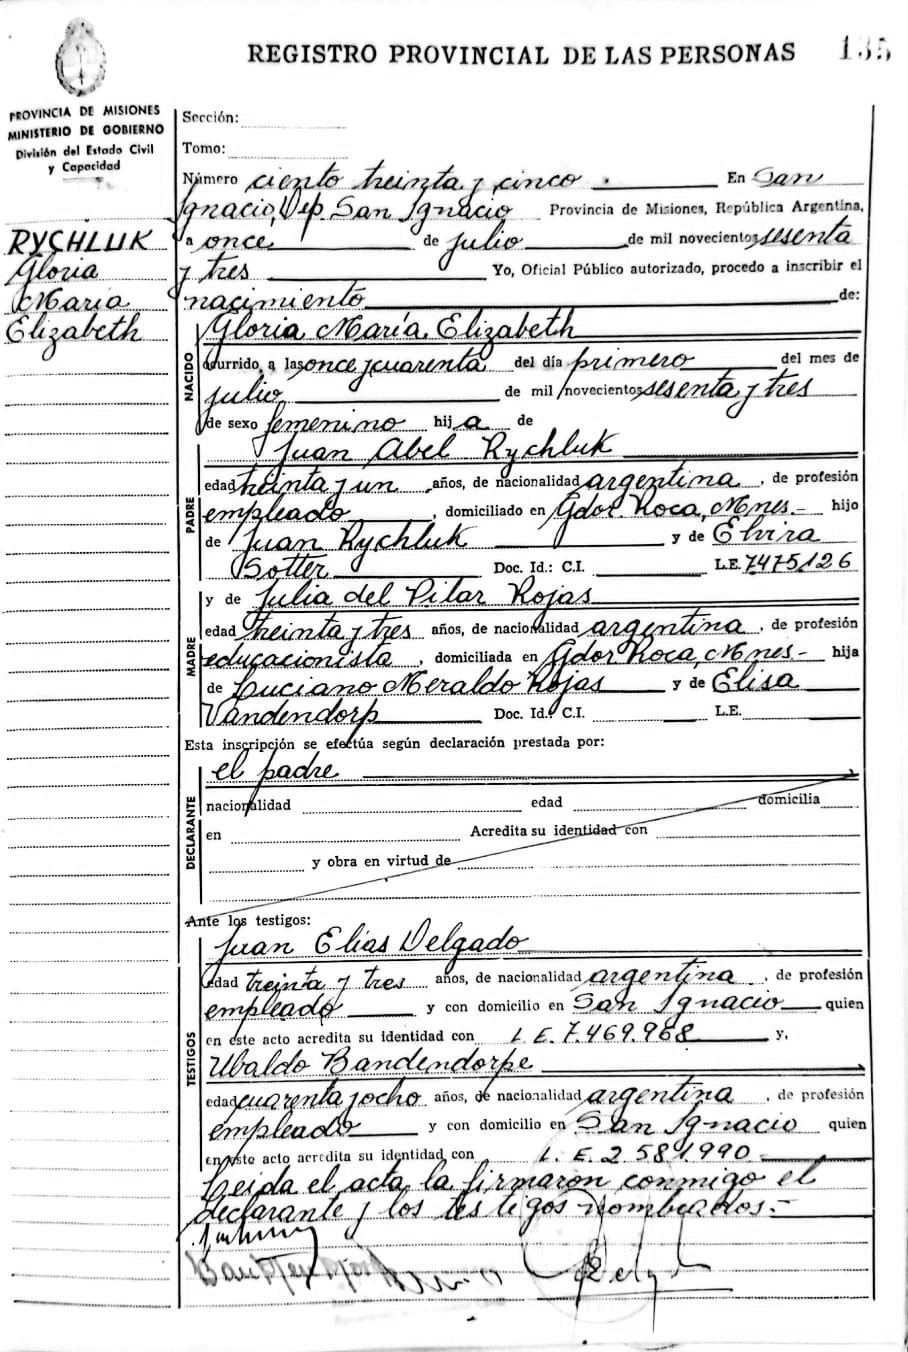 REGISTRO PROVINCIAL DE LAS PERSONAS 135
PROVINCIA DE MISIONES
MINISTERIO DE GOBIERNO
División del Estado Civil
y Capacidad
RYCHLUK
Gloria
María
Elizabeth
Sección:
Tomo:
Número ciento treinta y cinco . En San
Ignacio, Dep. San Ignacio Provincia de Misiones, República Argentina,
a once de julio de mil novecientos sesenta
y tres Yo, Oficial Público autorizado, procedo a inscribir el
nacimiento de:
NACIDO
Gloria María Elizabeth
ocurrido, a las once y cuarenta del día primero del mes de
julio de mil novecientos sesenta y tres
de sexo femenino hija de
PADRE
Juan Abel Rychluk
edad treinta y un años, de nacionalidad argentina, de profesión
empleado, domiciliado en Gdor. Roca, Mnes.- hijo
de Juan Rychluk y de Elvira
Sotter Doc. Id.: C.I. L.E. 7475126
MADRE
y de Julia del Pilar Rojas
edad treinta y tres años, de nacionalidad argentina, de profesión
educacionista, domiciliada en Gdor Roca, Mnes- hija
de Luciano Meraldo Rojas y de Elisa
Vandendorp Doc. Id.: C.I. L.E.
Esta inscripción se efectúa según declaración prestada por:
DECLARANTE
el padre
nacionalidad edad domicilia
en Acredita su identidad con
y obra en virtud de
Ante los testigos:
TESTIGOS
Juan Elías Delgado
edad treinta y tres años, de nacionalidad argentina, de profesión
empleado y con domicilio en San Ignacio quien
en este acto acredita su identidad con L.E. 7.469.968 y,
Ubaldo Bandendorpe
edad cuarenta y ocho años, de nacionalidad argentina, de profesión
empleado y con domicilio en San Ignacio quien
en este acto acredita su identidad con L.E. 2.581.990.-
Leída el acta, la firmaron conmigo el
declarante y los testigos nombrados.-